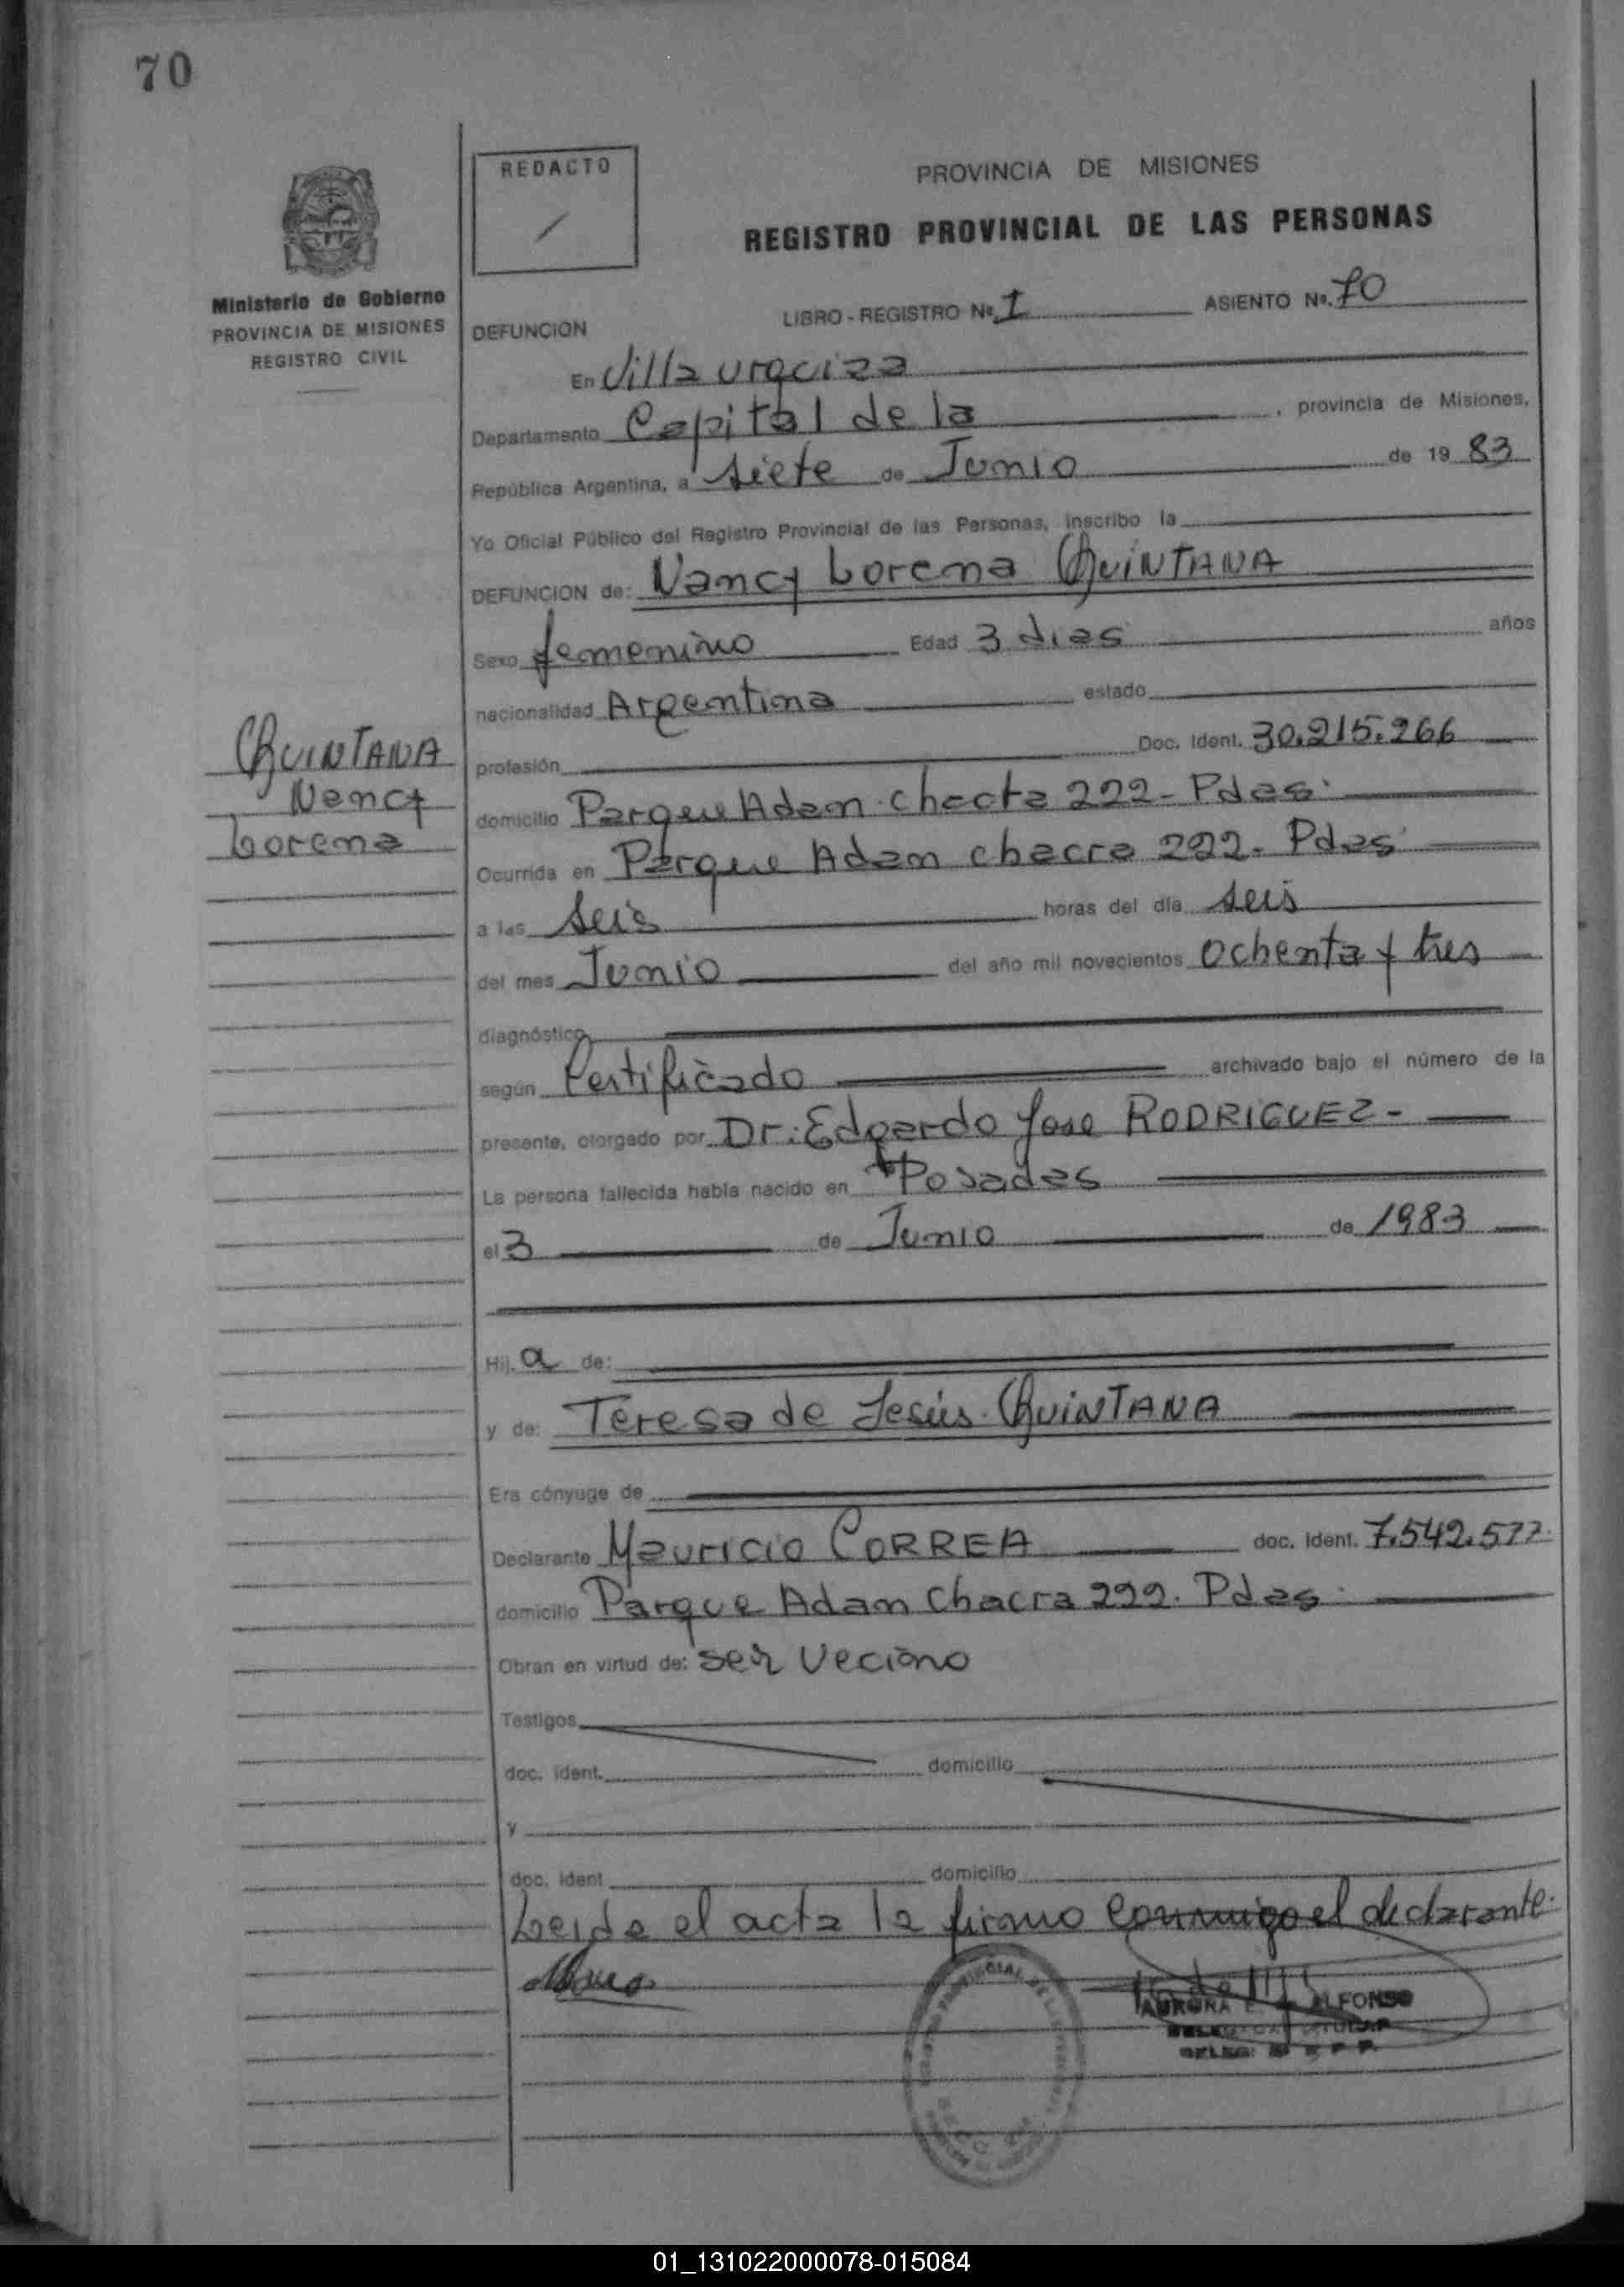 70
REDACTO
PROVINCIA DE MISIONES
REGISTRO PROVINCIAL DE LAS PERSONAS
Ministerio de Gobierno
PROVINCIA DE MISIONES
REGISTRO CIVIL
LIBRO - REGISTRO Nº. I ASIENTO Nº. 70
DEFUNCION
En Villa urquiza
Departamento Capital de la , provincia de Misiones,
República Argentina, a siete de Junio de 19 83
Yo Oficial Público del Registro Provincial de las Personas, inscribo la
DEFUNCION de: Nancy Lorena QUINTANA
Sexo femenino Edad 3 dias años
nacionalidad Argentina estado
QUINTANA
Nancy
Lorena
profesión Doc. Ident. 30.215.266
domicilio Parque Adam chacra 222 - Pdas.
Ocurrida en Parque Adam chacra 222. Pdas
a las seis horas del día seis
del mes Junio del año mil novecientos ochenta y tres
diagnóstico
según Certificado archivado bajo el número de la
presente, otorgado por Dr: Edgardo Jose RODRIGUEZ -
La persona fallecida había nacido en Posadas
el 3 de Junio de 1983
Hij. a de:
y de: Teresa de Jesús QUINTANA
Era cónyuge de
Declarante Mauricio CORREA doc. ident. 7.542.577.
domicilio Parque Adam Chacra 222. Pdas.
Obran en virtud de: ser Veciono
Testigos
doc. ident. domicilio
y
doc. ident domicilio
Leida el acta la firmo conmigo el declarante.
AURORA E. ALFONSO
01_131022000078-015084